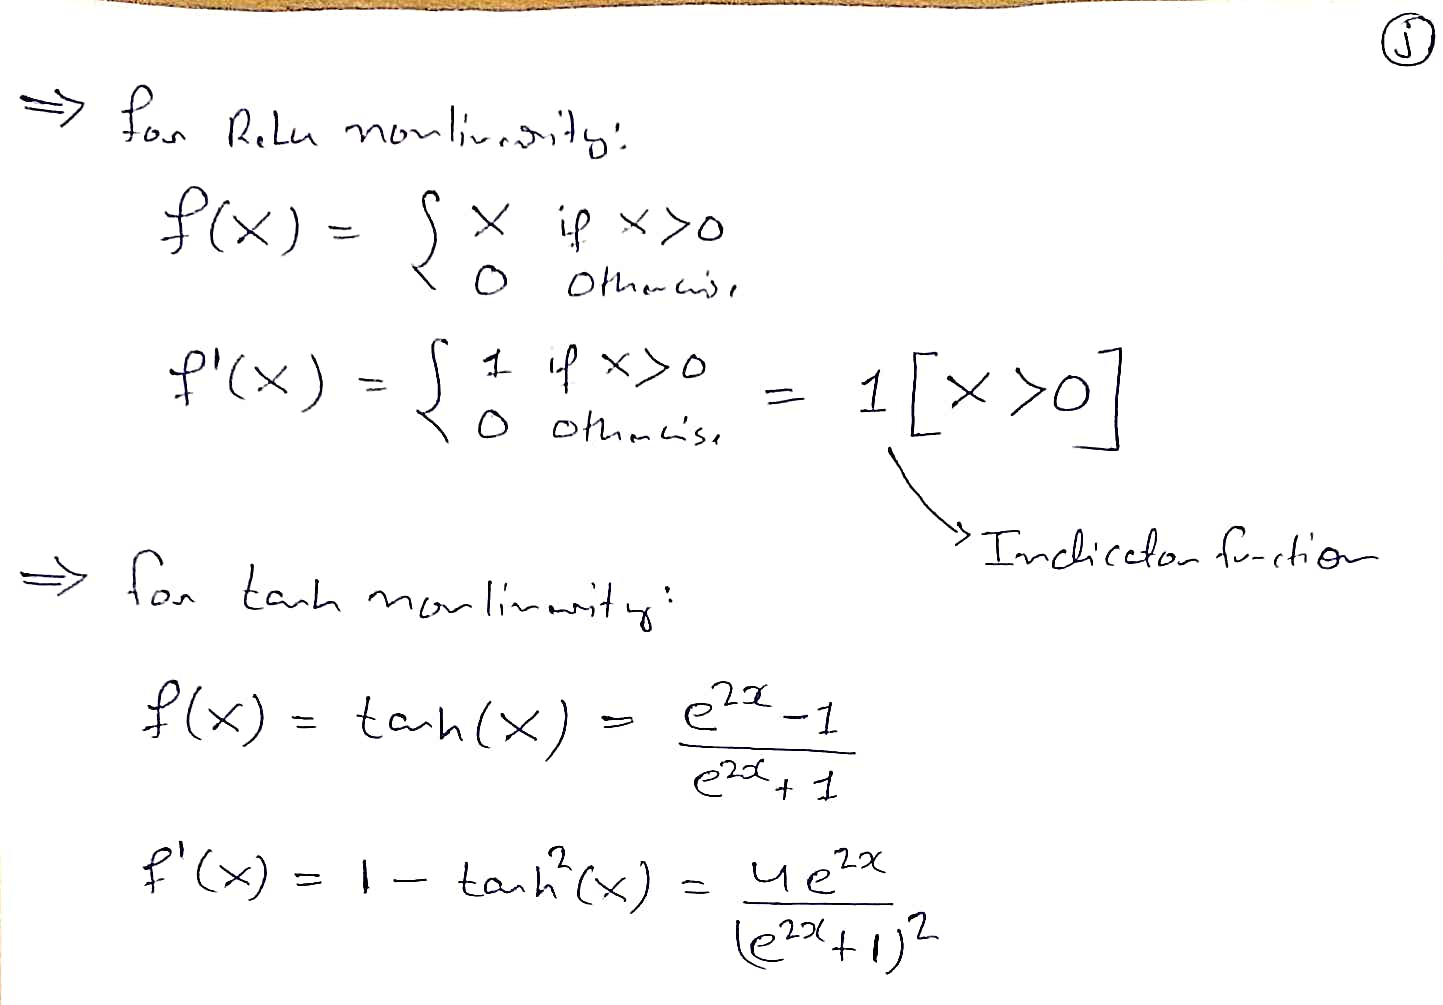 j
⇒ for ReLu nonlinearity:
f(x) = { x if x>0
0 otherwise
f'(x) = { 1 if x>0 = 1[x>0]
0 otherwise
Indicator function
⇒ for tanh nonlinearity:
f(x) = tanh(x) = e^{2x} - 1
e^{2x} + 1
f'(x) = 1 - tanh²(x) = 4e^{2x}
(e^{2x}+1)²